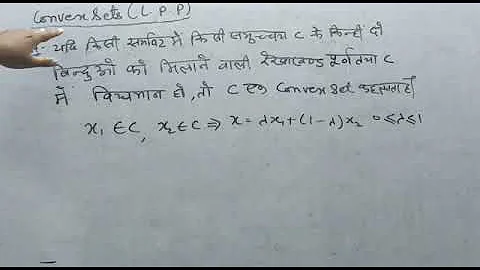 Convex Sets (L.P.P)
यदि किसी समष्टि में किसी समुच्चय C के किन्हीं दो
बिन्दुओं को मिलाने वाली रेखाखण्ड पूर्णतया C
में विद्यमान हो, तो C एक Convex Set कहलाता है।
x₁ ∈ C, x₂ ∈ C ⇒ x = λx₁ + (1-λ)x₂ 0 ≤ λ ≤ 1